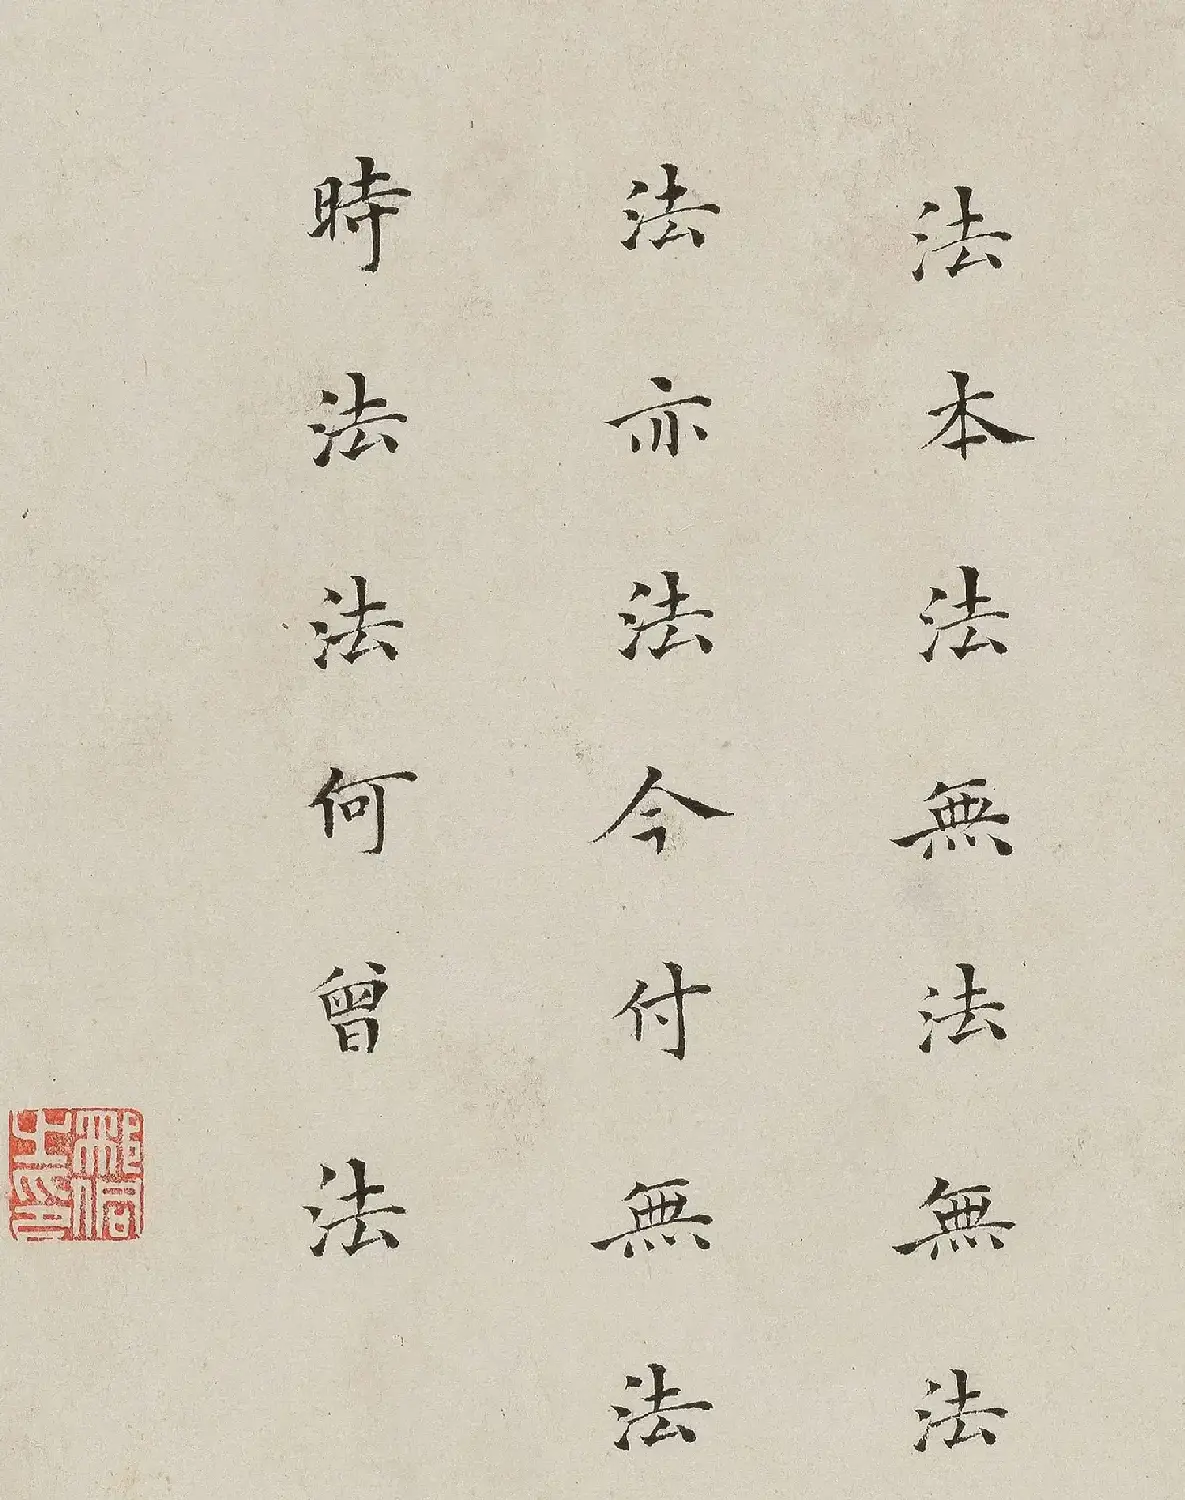 法本法無法無法
法亦法今付無法
時法法何曾法
邢侗之印